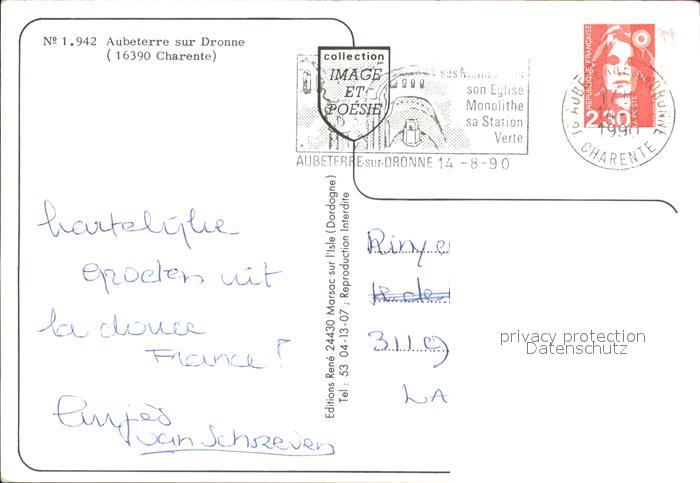 Nº 1.942 Aubeterre sur Dronne
(16390 Charente)
collection
IMAGE
ET
POÉSIE
son Eglise
Monolithe
sa Station
Verte
AUBETERRE-sur-DRONNE 14-8-90
REPUBLIQUE FRANÇAISE
2.30
LA POSTE
1990
CHARENTE
hartelijke
groeten uit
la douce
France!
van Schreven
Editions René 24430 Marsac sur l'Isle (Dordogne)
Tel : 53 04-13-07 ; Reproduction Interdite
3119
LA
privacy protection
Datenschutz